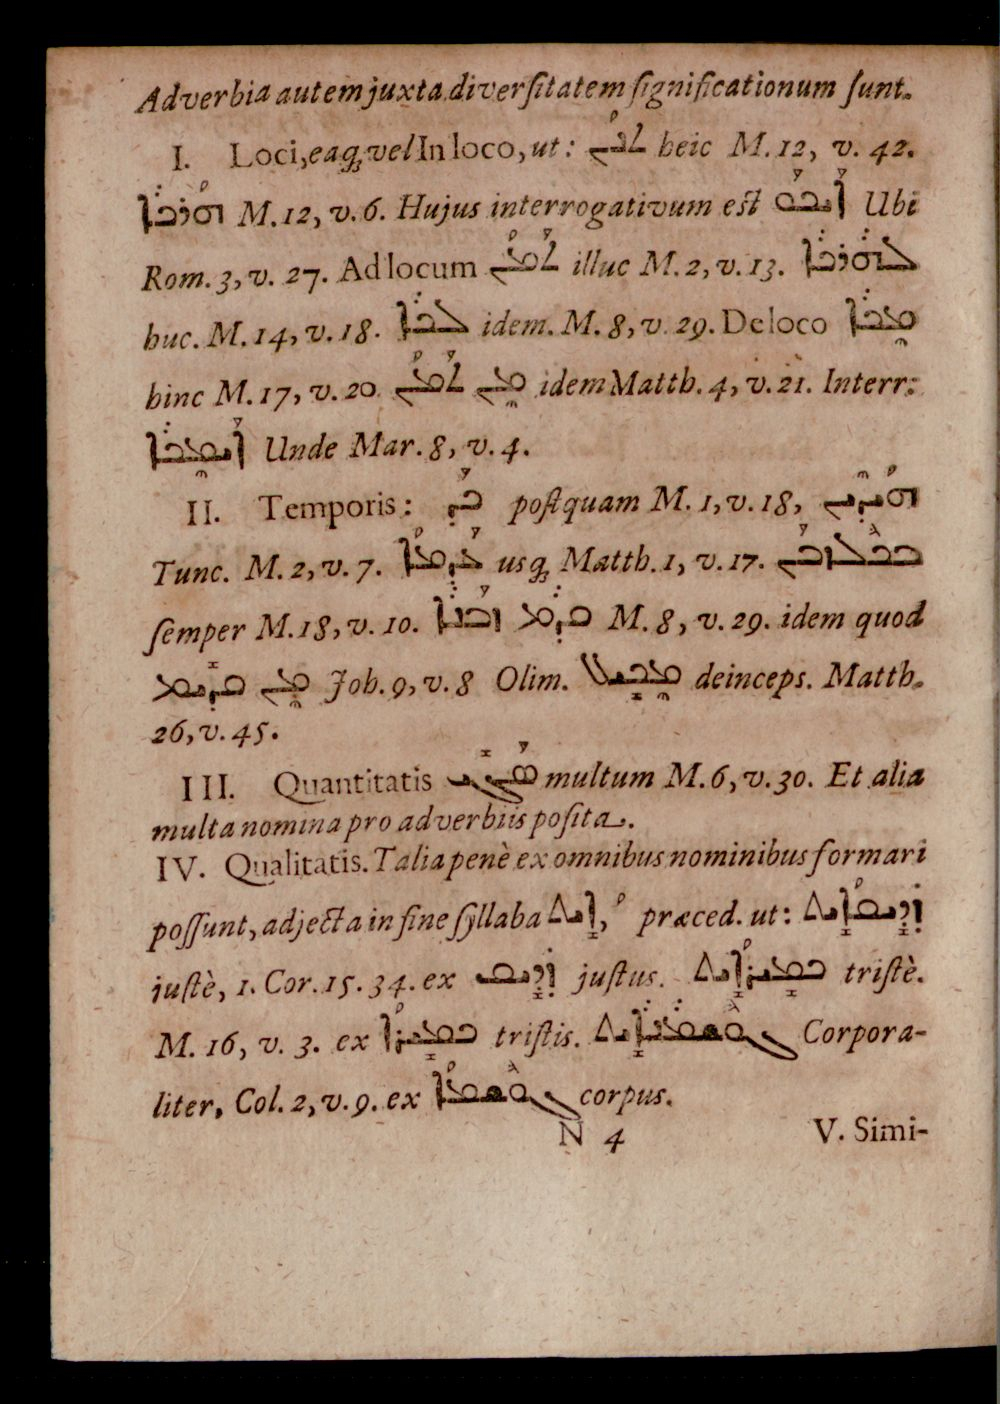 Adverbia autem juxta diversitatem significationum sunt.
I. Loci, eaq; vel In loco, ut: ܬܢܳܢ heic M. 12, v. 42.
ܗܳܪܟܐ M. 12, v. 6. Hujus interrogativum est ܐܰܝܟܰܘ Ubi
Rom. 3, v. 27. Ad locum ܬܰܡܳܢ illuc M. 2, v. 13. ܠܗܪܟܐ
huc. M. 14, v. 18. ܠܟܐ idem. M. 8, v. 29. De loco ܡܶܟܐ
hinc M. 17, v. 20 ܡܶܢ ܬܰܡܳܢ idem Matth. 4, v. 21. Interr:
ܐܰܝܡܶܟܐ Unde Mar. 8, v. 4.
II. Temporis: ܟܰܕ postquam M. 1, v. 18, ܗܳܝܕܶܝܢ
Tunc. M. 2, v. 7. ܥܕܰܡܳܐ usq; Matth. 1, v. 17. ܒܟܽܠܙܒܰܢ
semper M. 18, v. 10. ܩܕܡ ܙܰܒܢܐ M. 8, v. 29. idem quod
ܡܶܢ ܩܕܺܝܡ Joh. 9, v. 8 Olim. ܡܶܟܺܝܠ deinceps. Matth.
26, v. 45.
III. Quantitatis ܣܰܓܺܝ multum M. 6, v. 30. Et alia
multa nomina pro adverbiis posita.
IV. Qualitatis. Talia penè ex omnibus nominibus formari
possunt, adjecta in fine syllaba ܐܺܝܬ, ܳ præced. ut: ܙܕܺܝܩܳܐܺܝܬ
justè, 1. Cor. 15. 34. ex ܙܕܺܝܩ justus. ܟܡܺܝܪܳܐܺܝܬ tristè.
M. 16, v. 3. ex ܟܡܺܝܪܳܐ tristis. ܓܽܘܫܡܢܐܺܝܬ Corpora-
liter, Col. 2, v. 9. ex ܓܽܘܫܡܳܐ corpus.
N 4 V. Simi-